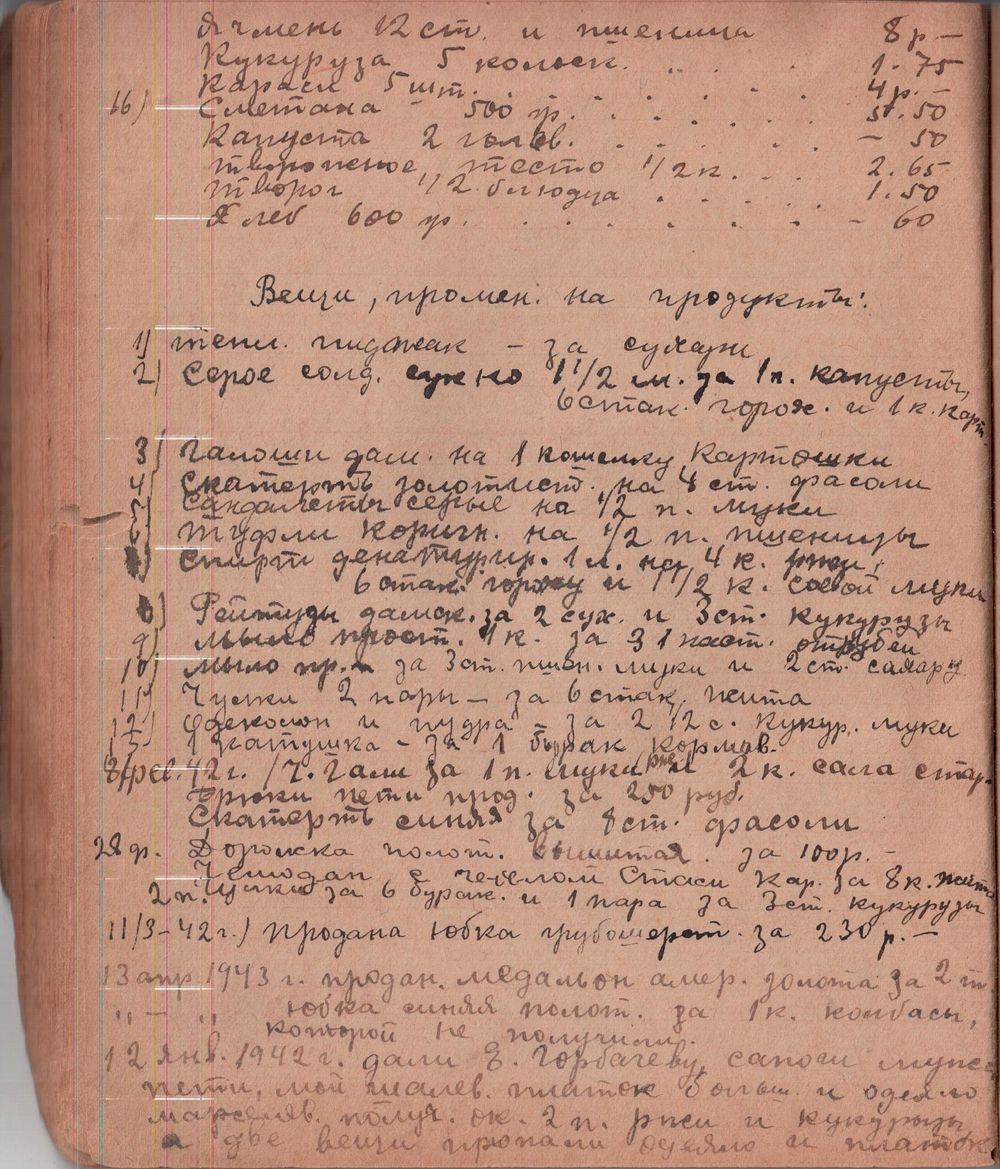 Ячмень 12 ст. и пшеница 8 р –
Кукуруза 5 колоск. . . . 1.75
Караси 5 шт. . . . . 4 р. –
16) Сметана – 500 гр. . . . . 5.50
Капуста 2 голов. . . . . – 50
творожное тесто 1/2 к. . . 2.65
творог 1/2 блюдца . . . . 1.50
Хлеб 600 гр. . . . . . – 60
Вещи, промен. на продукты:
1) тепл. пиджак – за сухари
2) Серое солд. сукно 1 1/2 м. за 1 п. капусты,
6 стак. горох. и 1 к. карт
3) галоши дам. на 1 кошелку картошки
4) Скатерть золотист. на 4 ст. фасоли
Сандалеты серые на 1/2 п. муки
туфли коричн. на 1/2 п. пшеницы
спирт денатурир. 1 л. на 4 к. ржи,
6 стак. гороху и 1 1/2 к. соевой муки
Рейтузы дамск. за 2 сух. и 3 ст. кукурузы
9) мыло прост. 1 к. за 3 отрубей
10) мыло пр. за 3 ст. пшен. муки и 2 ст. сахару
11) Чулки 2 пары – за 6 стак. жита
12) Одеколон и пудра – за 2 1/2 с. кукур. муки
1 катушка – за 1 бурак кормов.
8/фев. 42 г. /7. Гали за 1 п. муки рж и 2 к. сала стар.
Брюки пети прод. за 250 руб.
Скатерть синяя за 8 ст. фасоли
28 ф. Дорожка полот. вышитая. за 100 р. –
Чемодан с чехлом Стаси кар. за 8 к. жита
2 п. Чулки за 6 бурак. и 1 пара за 3 ст. кукурузы
11/3 – 42 г.) продана юбка грубошерст. за 230 р. –
13 апр. 1943 г. продан. медальон амер. золота за 2 т.
,, – ,, юбка синяя полот. за 1 к. колбасы,
которой не получили.
12 янв. 1942 г. дали Е. Горбачеву, сапоги мужс
пети, мой шалев. платок больш. и одеяло
марселев. получ. ок. 2 п. ржи и кукурузы
а две вещи пропали одеяло и платок